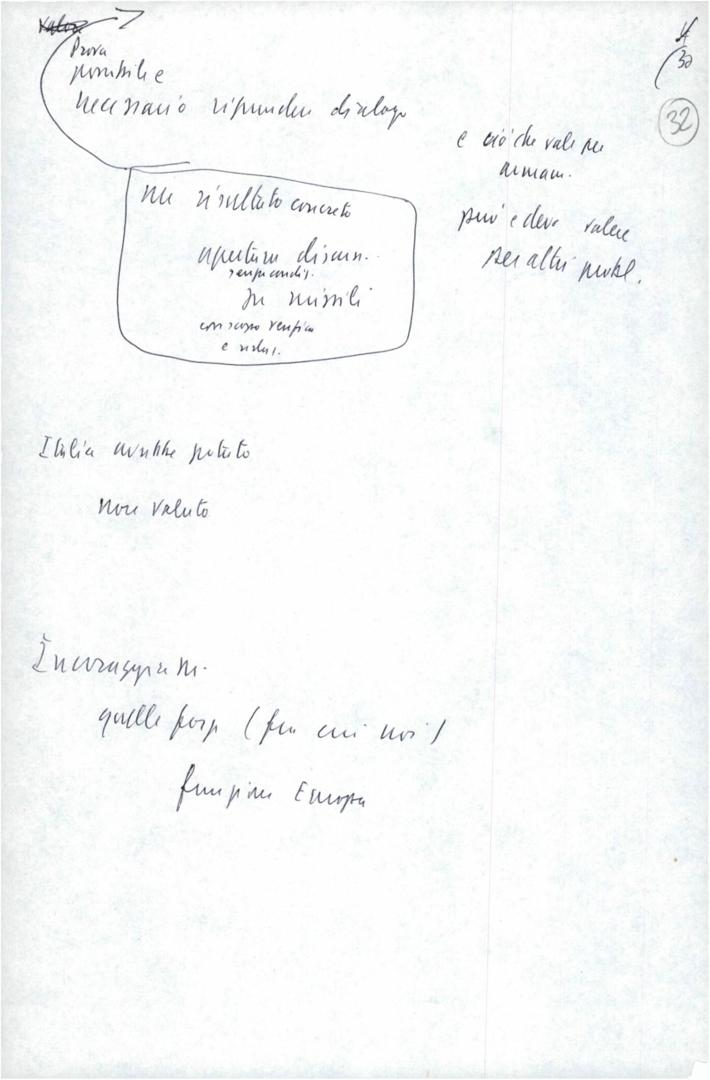 Prova
possibile e
necessario riprendere dialogo
32
e ciò che vale per
armam.
può e deve valere
per altri probl.
un risultato concreto
apertura discus.
senza condiz.
su missili
con scopo verifica
e riduz.
Italia avrebbe potuto
non valuto
Incoraggiam.
quelle forze (fra cui noi)
funzione Europa